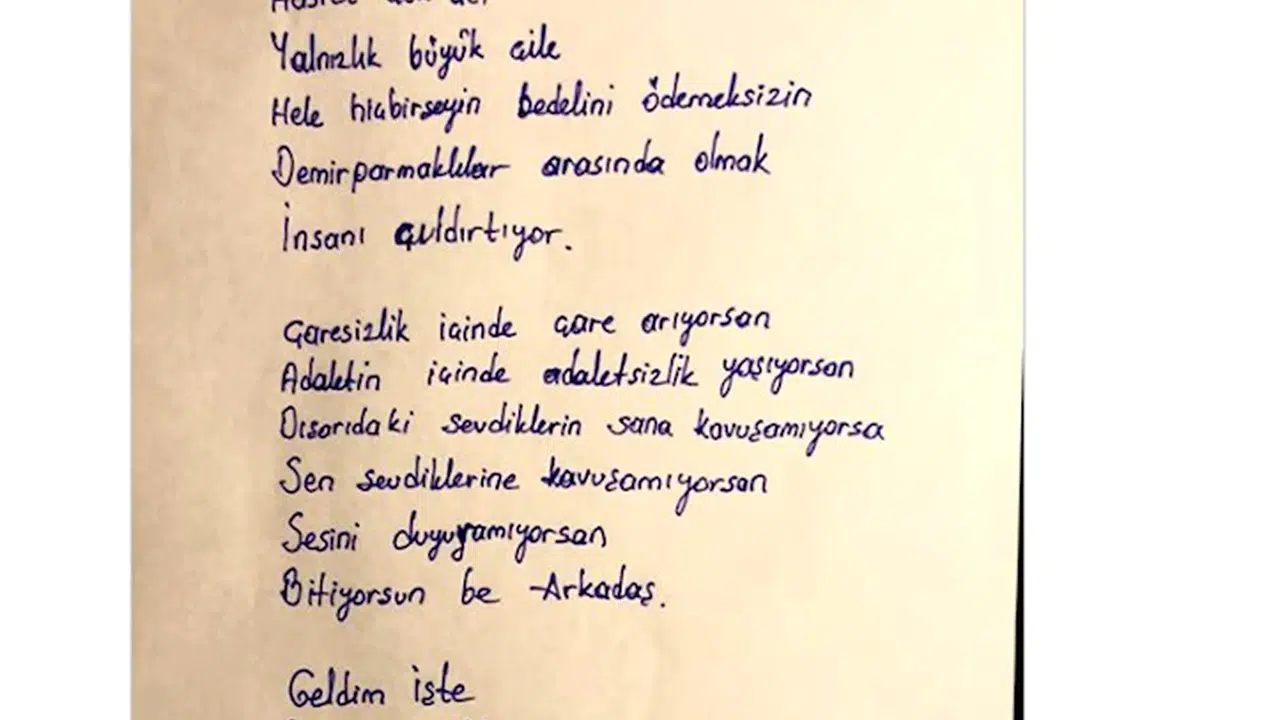 Yalnızlık büyük çile
Hele hiçbirşeyin bedelini ödemeksizin
Demirparmaklılar arasında olmak
İnsanı çıldırtıyor.
Çaresizlik içinde çare arıyorsan
Adaletin içinde adaletsizlik yaşıyorsan
Dışarıdaki sevdiklerin sana kavuşamıyorsa
Sen sevdiklerine kavuşamıyorsan
Sesini duyuramıyorsan
Bitiyorsun be Arkadaş.
Geldim işte